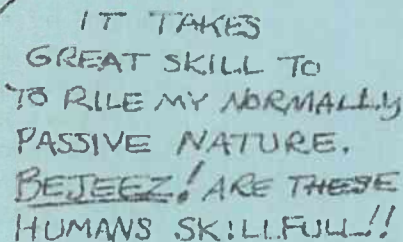 IT TAKES
GREAT SKILL TO
TO RILE MY NORMALLY
PASSIVE NATURE.
BEJEEZ! ARE THESE
HUMANS SKILLFULL!!